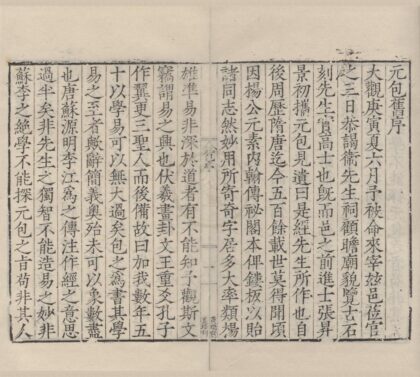 元包舊序
大觀庚寅夏六月予被命來宰茲邑蒞官
之三日恭謁衞先生祠顧瞻廟貌覽古石
刻先生實高士也旣而邑之前進士張昇
景初攜元包見遺曰是經先生所作也自
後周歷隋唐迄今五百餘載世莫得聞頃
因楊公元素內翰傳祕閣本俾鏤板以貽
諸同志然妙用所寄奇字居多大率類揚
雄準易非深於道者有不能知予觀斯文
竊謂易之興也伏羲畫卦文王重爻孔子
作翼更三聖人而後備故曰加我數年五
十以學易可以無大過矣包之爲書其學
易之至者歟辭簡義奧殆未可以象數盡
也唐蘇源明李江爲之傳注作經之意思
過半矣非先生之獨智不能造易之妙非
蘇李之絕學不能探元包之旨苟非其人